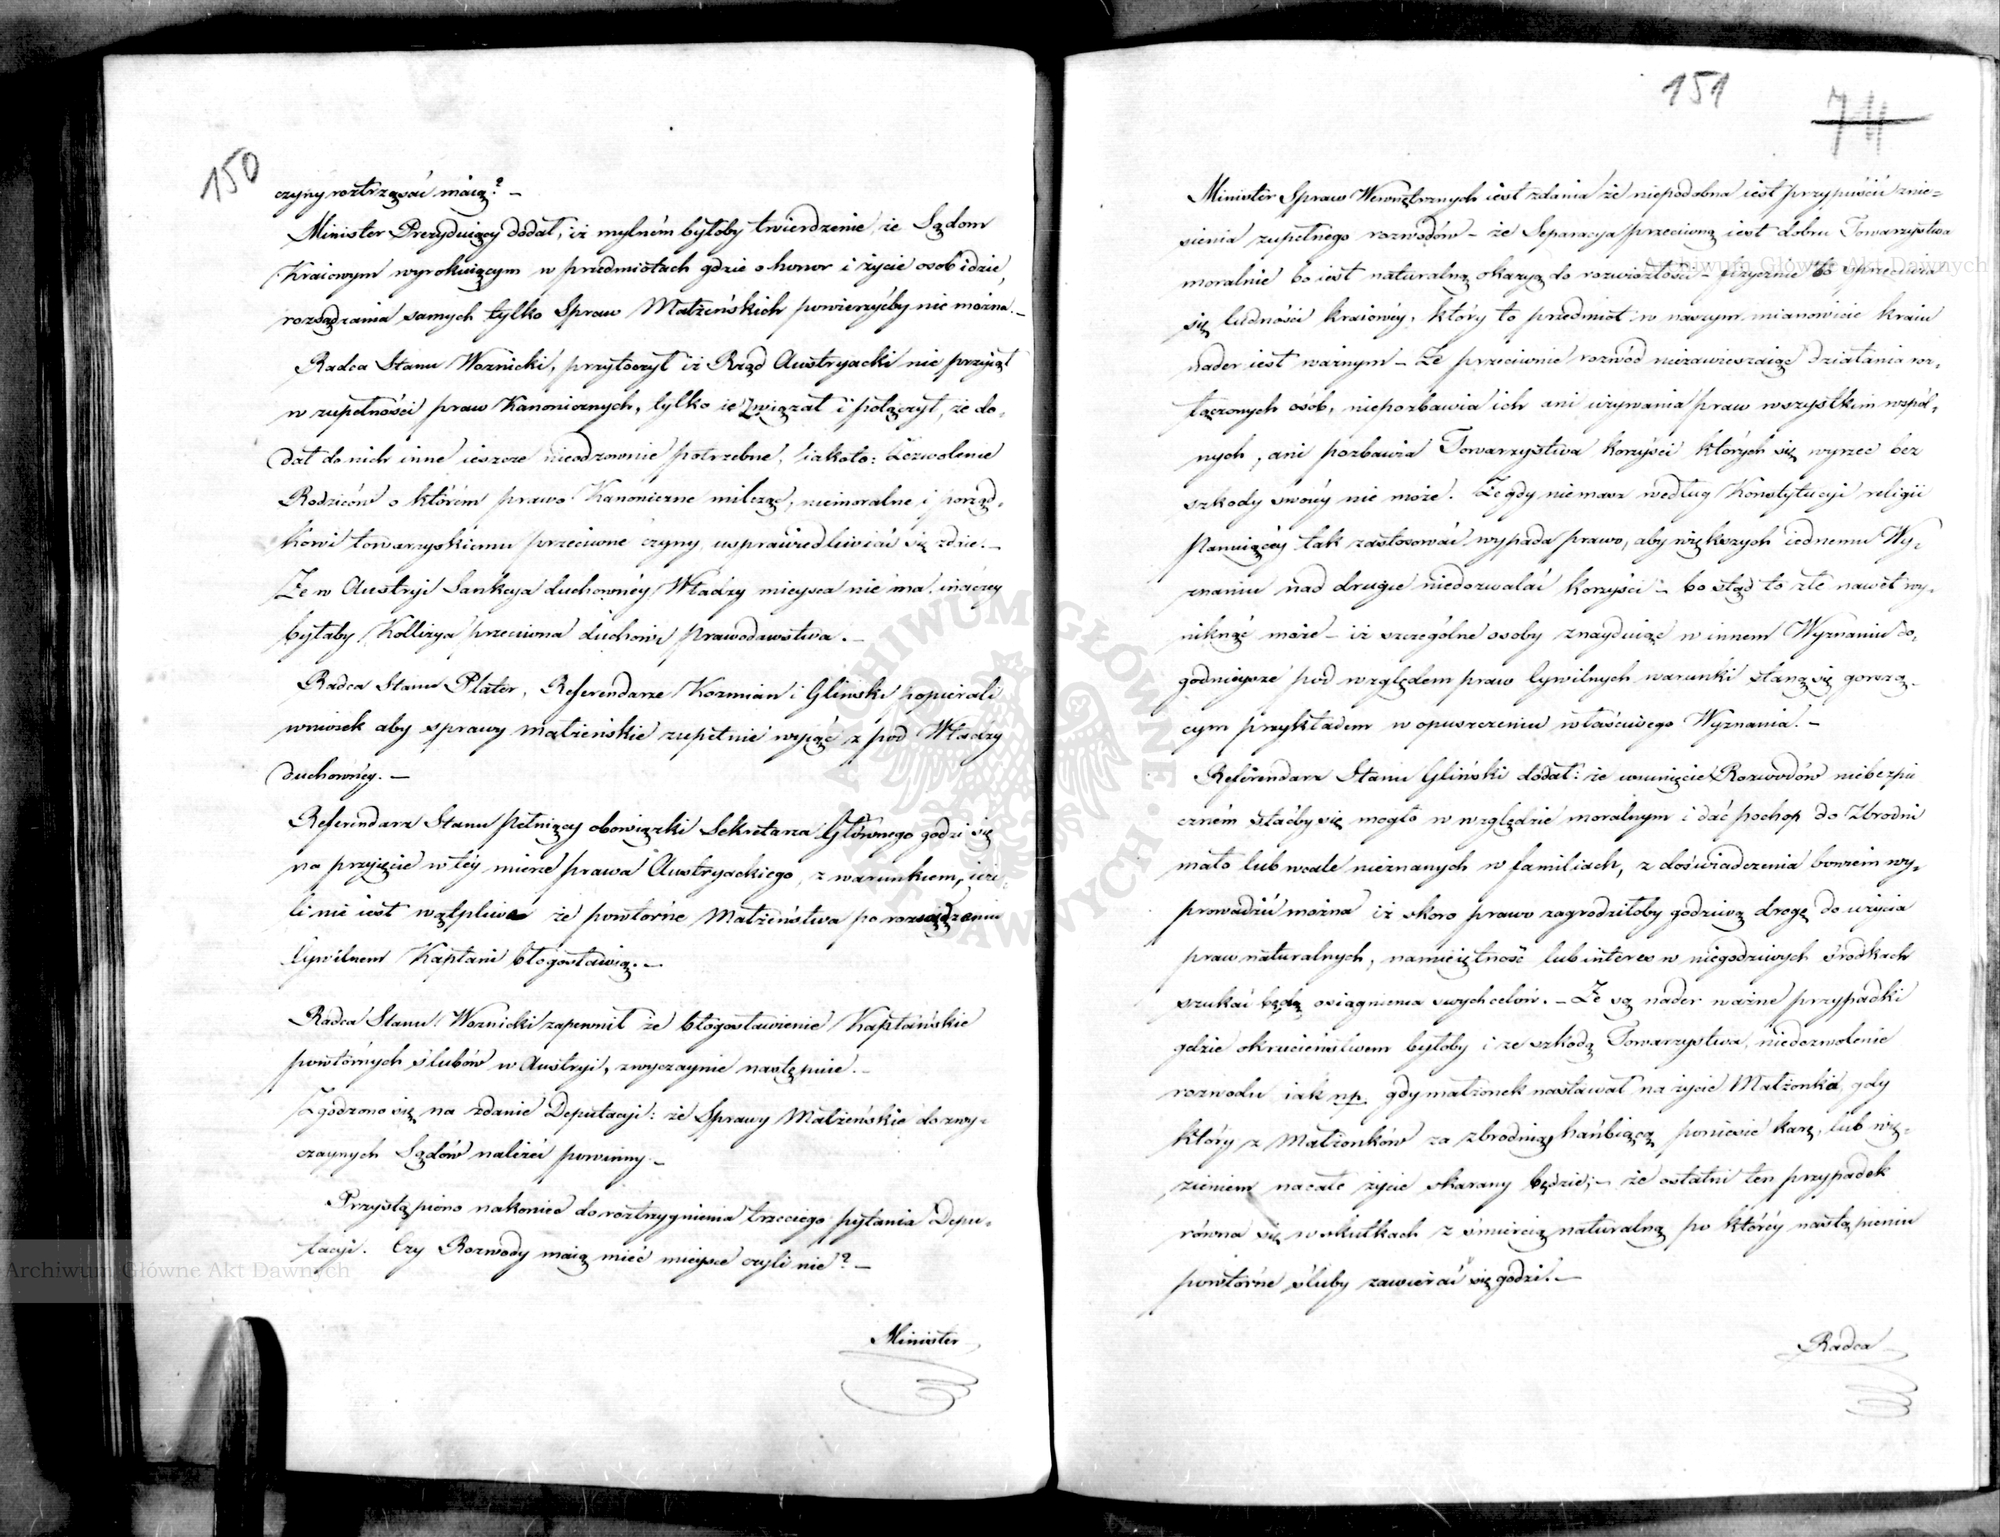 150
czyny roztrząsać maią? —
Minister Prezyduiący dodał, iż mylném byłoby twierdzenie, że Sądom
Kraiowym wyrokuiącym w przedmiotach gdzie o honor i życie osob idzie,
rozsądzania samych tylko Spraw Małżeńskich powierzyćby nie można. —
Radca Stanu Woznicki, przytoczył iż Rząd Austryacki nie przyiął
w zupełności praw Kanonicznych, tylko ie związał i połączył, że do-
dał do nich inne ieszcze nieodzownie potrzebne, iakoto: Zezwolenie
Rodziców o którém prawo Kanoniczne milcząc, niemoralne i porząd-
kowi towarzyskiemu przeciwne czyny usprawiedliwiać się zdie. —
Że w Austryi Sankcya duchownéy Władzy mieysca nie ma, inaczey
byłaby Kollizya przeciwna duchowi prawodawstwa. —
Radca Stanu Plater, Referendarze Kozmian i Gliński popierali
wniosek aby sprawy małżeńskie zupełnie wyiąć z pod Władzy
duchownéy. —
Referendarz Stanu pełniący obowiązki Sekretarza Głównego godzi się
na przyięcie w téy mierze prawa Austryackiego, z warunkiem, ieże-
li nie iest wątpliwe że powtórne Małżeństwa po rozsądzeniu
Cywilnem Kapłani błogosławią. —
Radca Stanu Woznicki zapewnił że błogosławienie Kapłańskie
powtórnych ślubów w Austryi, zwyczaynie następuie. —
Zgodzono się na zdanie Deputacyi: że Sprawy Małżeńskie do zwy-
czaynych Sądów należéć powinny. —
Przystąpiono nakoniec do roztrzygnienia trzeciego pytania Depu-
tacyi. Czy Rozwody maią mieć mieysce czyli nie? —
Minister
151
74
Minister Spraw Wewnętrznych iest zdania że niepodobna iest przypuścić znie-
sienia zupełnego rozwodów — że Separacya przeciwną iest dobru Towarzystwa
moralnie bo iest naturalną okazyą do rozwiozłości — fizycznie bo sprzeciwia
się ludności kraiowéy, który to przedmiot w naszym mianowicie kraiu
nader iest ważnym — Że przeciwnie rozwód niezawieszaiąc działania roz-
łączonych osób, niepozbawia ich ani używania praw wszystkim wspól-
nych, ani pozbawia Towarzystwa korzyści których się wyrzec bez
szkody swoiéy nie może. Że gdy niemasz według Konstytucyi religii
Panuiącéy tak zastosować wypada prawo, aby większych iednemu Wy-
znaniu nad drugie niedozwalać korzyści — bo stąd to złe nawet wy-
niknąć może — iż szczególne osoby znayduiąc w innem Wyznaniu do-
godnieysze pod względem praw Cywilnych warunki staną się gorszą-
cym przykładem w opuszczeniu właściwego Wyznania. —
Referendarz Stanu Gliński dodał: że usunięcie Rozwodów niebezpie
czném staćby się mogło w względzie moralnym i dać pochop do Zbrodni
mało lub wcale nieznanych w familiach, z doświadczenia bowiem wy-
prowadzić można iż skoro prawo zagrodziłoby godziwą drogę do użycia
praw naturalnych, namiętność lub interes w niegodziwych środkach
szukać będą osiągnienia swych celów. — Że są nader ważne przypadki
gdzie okrucieństwem byłoby i ze szkodą Towarzystwa, niedozwolenie
rozwodu iak np. gdy małżonek nastawał na życie Małżonki, gdy
który z Małżonków za zbrodnią hańbiącą poniesie karę, lub wię-
zieniem na całe życie skarany będzie; — że ostatni ten przypadek
równa się w skutkach z śmiercią naturalną po któréy nastąpieniu
powtórne śluby zawierać się godzi. —
Radca
Archiwum Główne Akt Dawnych
Archiwum Główne Akt Dawnych
ARCHIWUM GŁÓWNE AKT DAWNYCH